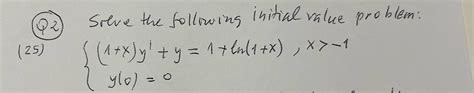 Q2 Solve the following initial value problem:
(25) { (1+x)y' + y = 1 + ln(1+x) , x > -1
y(0) = 0